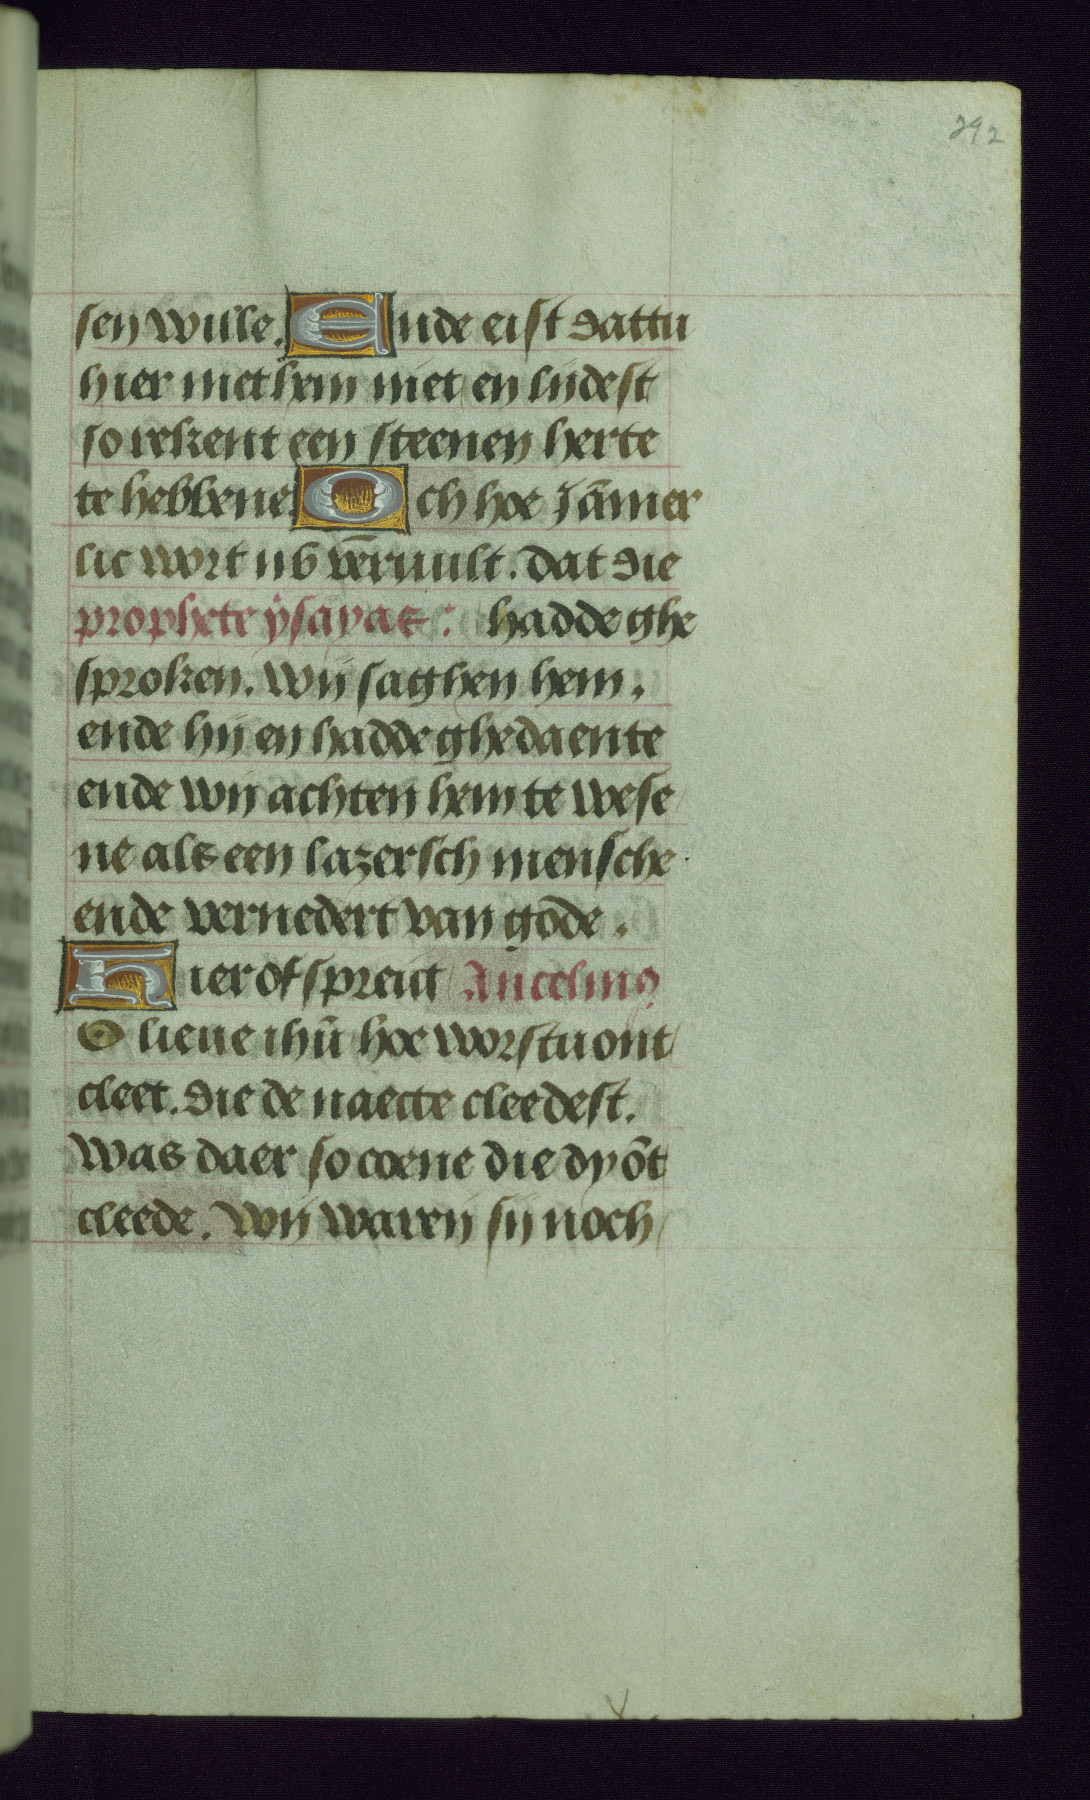 292
sen wille. Ende eist dattu
hier met hem niet en lijdest
so rekent een steenen herte
te hebbene. Och hoe Jãmer
lic wort nv v̄ervuilt. dat die
prophete ysayas: hadde ghe
sproken. wij saghen hem.
ende hij en hadde ghedaente
ende wij achten hem te wese
ne als een lazersch mensche
ende vernedert van gode.
Hier of spreict Ancelmꝯ
O lieue ihū hoe worstu ont
cleet. die de naecte cleedest.
Was daer so coene die dy ōt
cleede. Wij waren sij noch